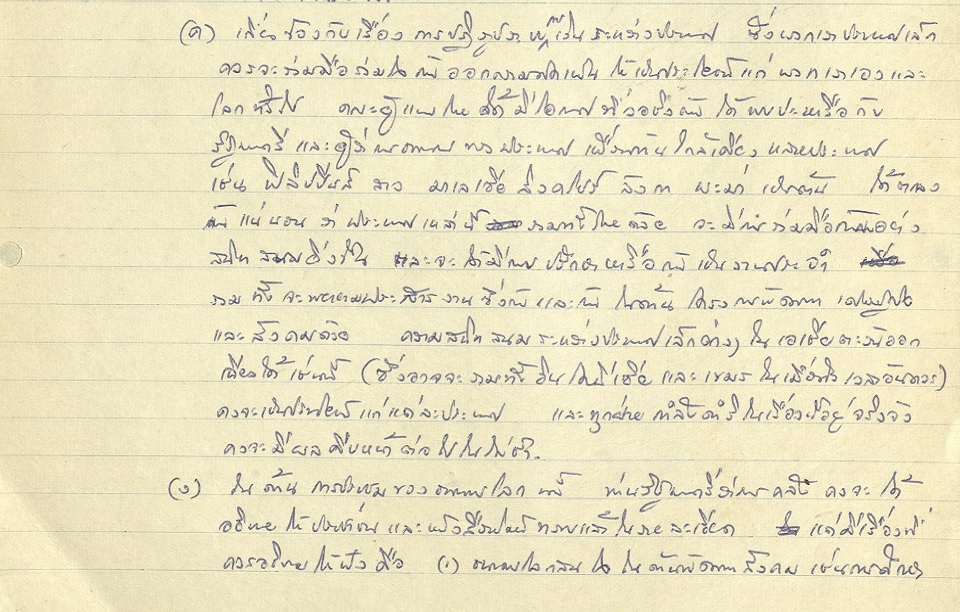 (ค) เกี่ยวข้องกับเรื่อง การปฏิรูประบบเงินระหว่างประเทศ ซึ่งพวกเราประเทศเล็ก
ควรจะร่วมมือร่วมใจกันออกความคิดเห็น ให้เป็นประโยชน์แก่ พวกเราเองและ
โลกทั่วไป คณะผู้แทนไทย ได้มีโอกาส ที่จะ ได้พบปะหารือกับ
รัฐมนตรี และผู้ว่าการธนาคาร ของประเทศ เพื่อนบ้าน ใกล้เคียง หลายประเทศ
เช่น ฟิลิปปินส์ ลาว มาเลเซีย สิงคโปร์ ลังกา พะม่า เป็นต้น ได้ตกลง
กันแน่นอน ว่า ประเทศเหล่านี้ รวมทั้งไทยด้วย จะมีการร่วมมือกันอย่าง
สนิทสนมยิ่งขึ้น และจะได้มีการปรึกษาหารือกันเป็นงานประจำ
รวมทั้งจะพยายามประสานงานซึ่งกันและกัน ในด้านโครงการพัฒนาเศรษฐกิจ
และสังคมด้วย ความสนิทสนมระหว่างประเทศเล็กต่างๆ ในเอเซียตะวันออก
เฉียงใต้เช่นนี้ (ซึ่งอาจจะรวมทั้งอินโดนีเซีย และเขมร ในเมื่อถึงเวลาอันควร)
คงจะเป็นประโยชน์แก่แต่ละประเทศ และทุกฝ่ายกำลังดำริในเรื่องนี้อยู่จริงจัง
คงจะมีผลคืบหน้าต่อไปในไม่ช้า.
(ง) ในด้านการประชุมของธนาคารโลกนี้ ท่านรัฐมนตรีว่าการคลัง คงจะได้
อธิบายให้ประชาชน และหนังสือพิมพ์ทราบแล้วในรายละเอียด แต่มีเรื่องที่
ควรอธิบายให้ฟังคือ (๑) ธนาคารโลกสนใจในด้านพัฒนาสังคม เช่นการศึกษา